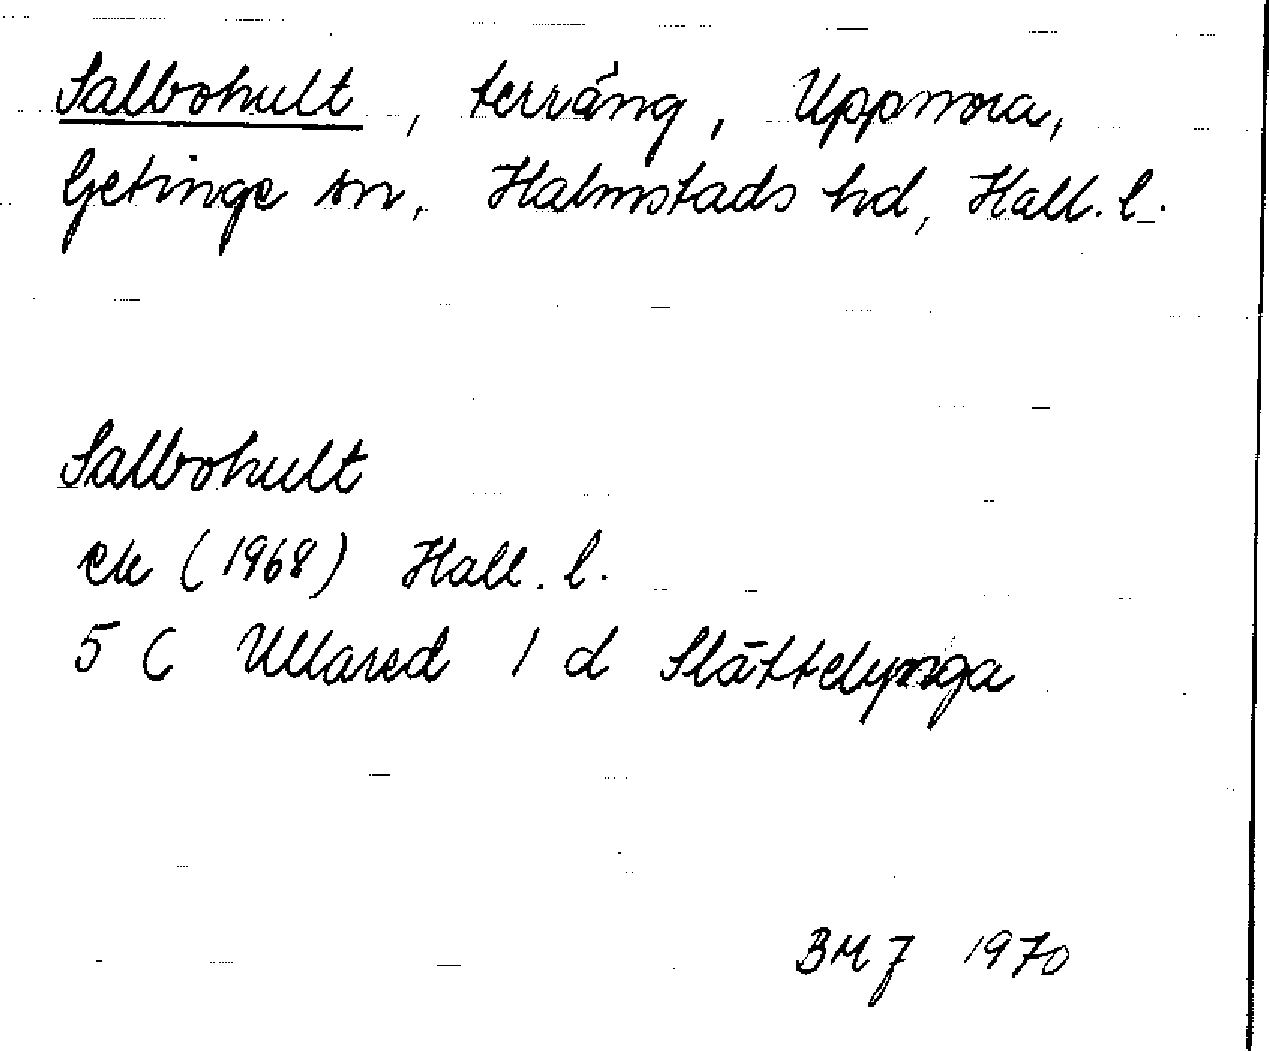 Salbohult, terräng, Uppnora,
Getinge sn, Halmstads hd, Hall. l.
Salbohult
ek (1968) Hall. l.
5 C Ullared 1 d Slättelynga
BMJ 1970